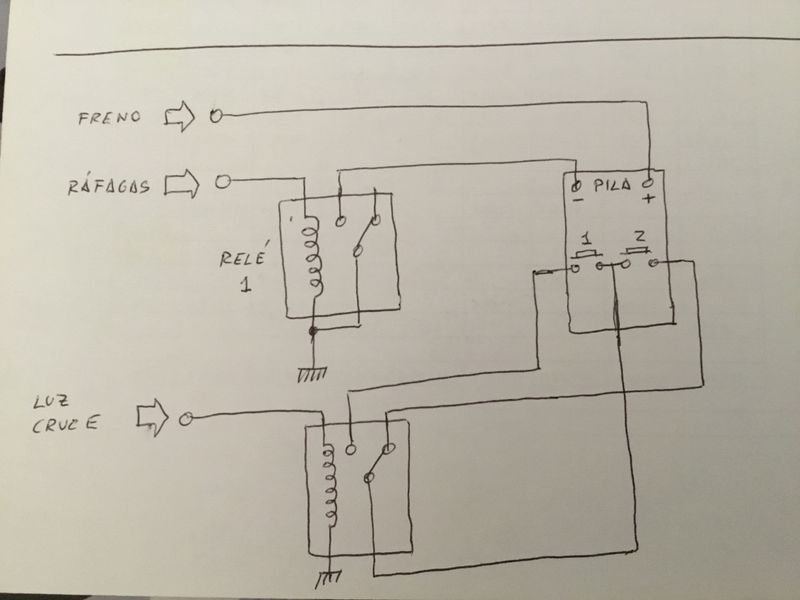 FRENO
RÁFAGAS
PILA
- +
1 2
RELÉ
1
LUZ
CRUCE